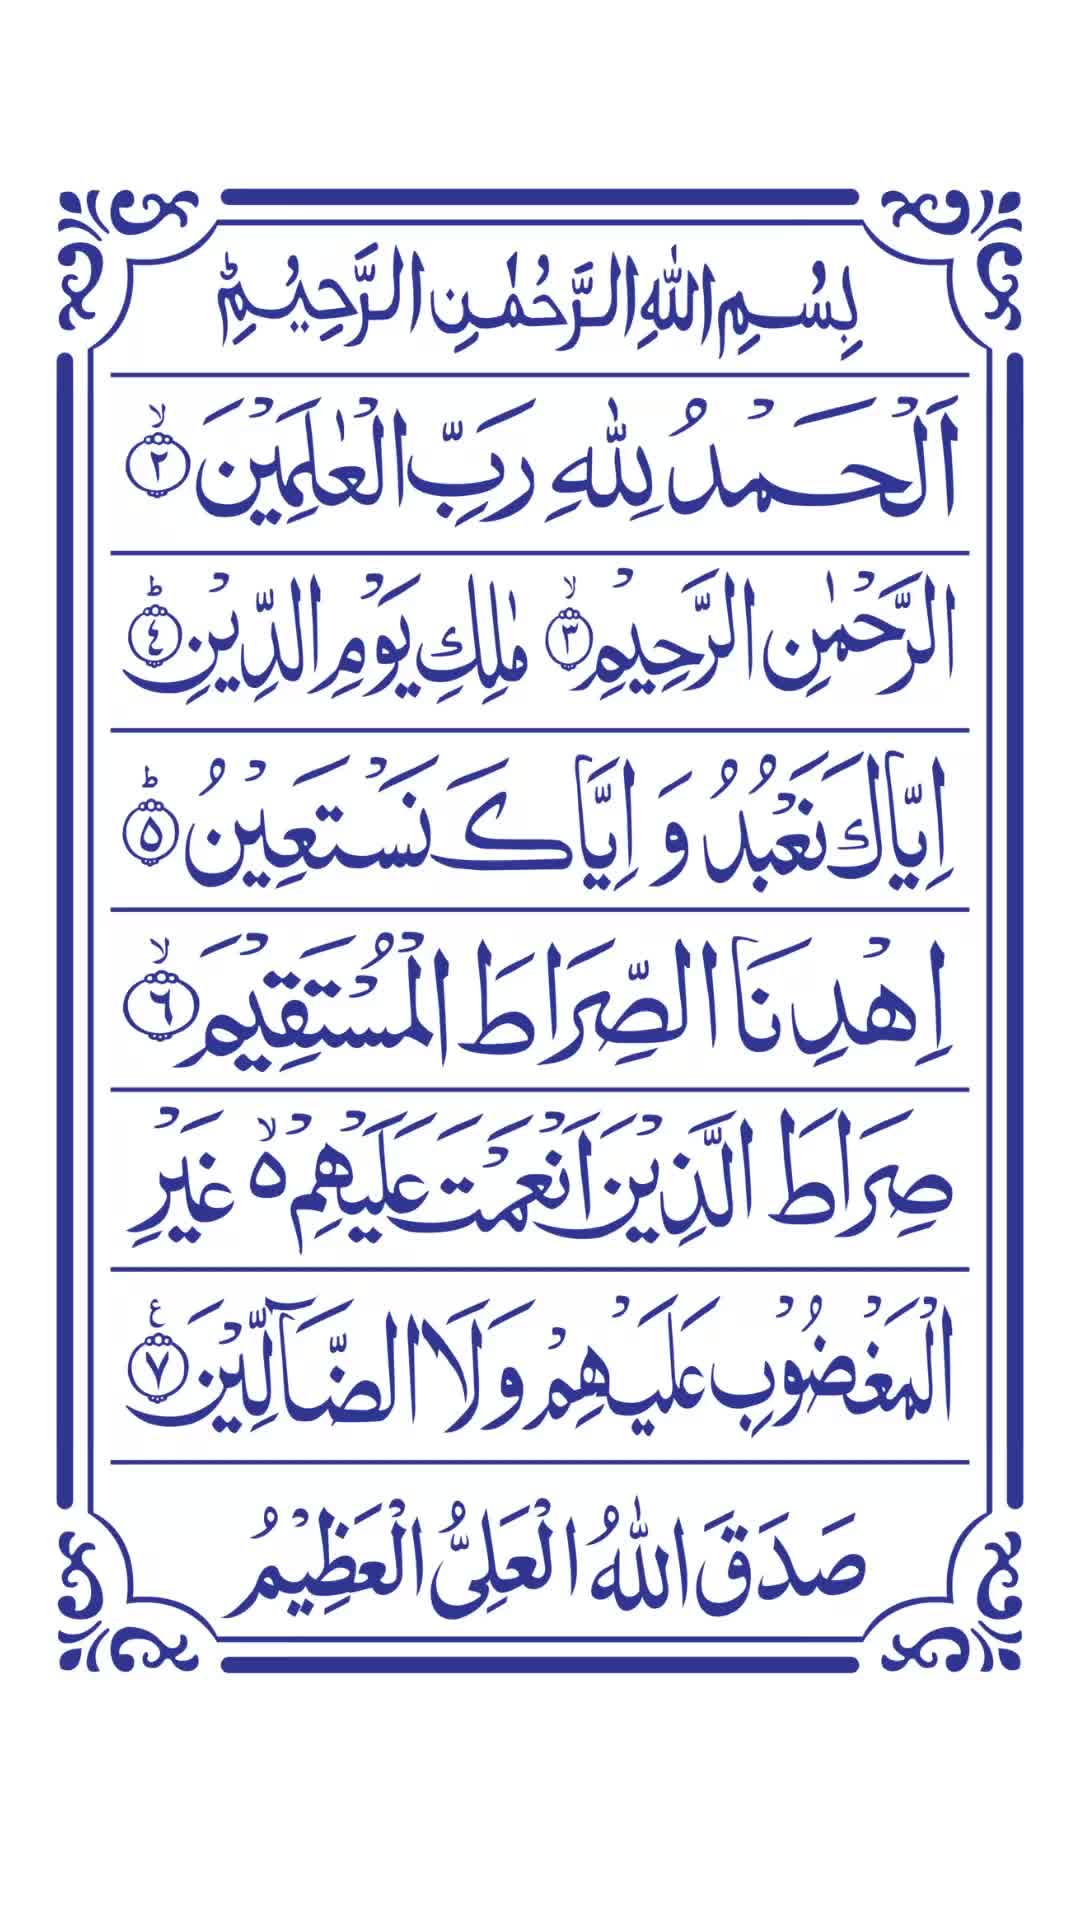 بِسْمِ اللهِ الرَّحْمٰنِ الرَّحِيْمِ ؕ
اَلْحَمْدُ لِلّٰهِ رَبِّ الْعٰلَمِيْنَ ۙ ٢
الرَّحْمٰنِ الرَّحِيْمِ ۙ ٣ مٰلِكِ يَوْمِ الدِّيْنِ ؕ ٤
اِيَّاكَ نَعْبُدُ وَ اِيَّاكَ نَسْتَعِيْنُ ؕ ٥
اِهْدِنَا الصِّرَاطَ الْمُسْتَقِيْمَ ۙ ٦
صِرَاطَ الَّذِيْنَ اَنْعَمْتَ عَلَيْهِمْ ۙ ۵ غَيْرِ
الْمَغْضُوْبِ عَلَيْهِمْ وَلَا الضَّآلِّيْنَ ع ٧
صَدَقَ اللهُ الْعَلِىُّ الْعَظِيْمُ